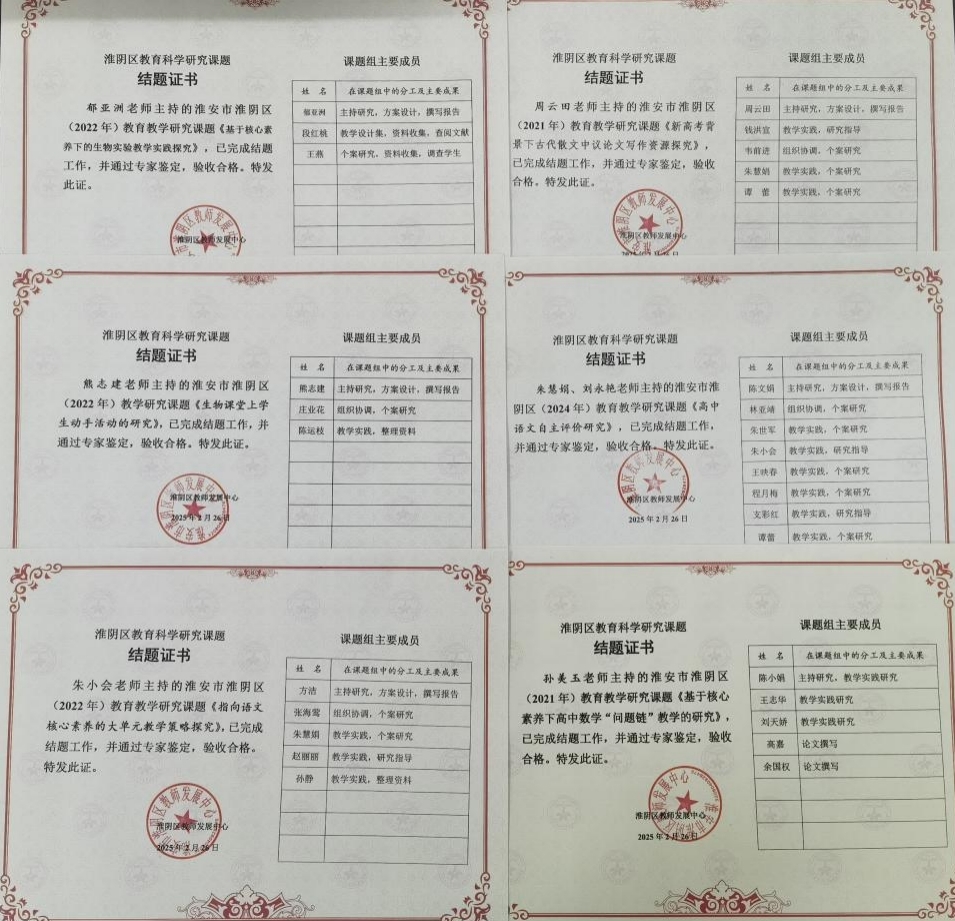 淮阴区教育科学研究课题
结题证书
郁亚洲老师主持的淮安市淮阴区
（2022年）教育教学研究课题《基于核心素
养下的生物实验教学实践探究》，已完成结题
工作，并通过专家鉴定，验收合格。特发
此证。
淮阴区教师发展中心
课题组主要成员
姓 名 在课题组中的分工及主要成果
郁亚洲 主持研究，方案设计，撰写报告
段红桃 教学设计集，资料收集，查阅文献
王燕 个案研究，资料收集，调查学生
周云田老师主持的淮安市淮阴区
（2021年）教育教学研究课题《新高考背
景下古代散文中议论文写作资源探究》，
已完成结题工作，并通过专家鉴定，验收
合格。特发此证。
淮阴区教育科学研究课题
结题证书
淮阴区教师发展中心
课题组主要成员
姓 名 在课题组中的分工及主要成果
周云田 主持研究，方案设计，撰写报告
钱洪宣 教学实践，研究指导
韦前进 组织协调，个案研究
朱慧娟 教学实践，个案研究
谭 蕾 教学实践，个案研究
淮阴区教育科学研究课题
结题证书
熊志建老师主持的淮安市淮阴区
（2022年）教学研究课题《生物课堂上学
生动手活动的研究》，已完成结题工作，并
通过专家鉴定，验收合格。特发此证。
淮阴区教师发展中心
2025年2月26日
课题组主要成员
姓 名 在课题组中的分工及主要成果
熊志建 主持研究，方案设计，撰写报告
庄业花 组织协调，个案研究
陈运枝 教学实践，整理资料
淮阴区教育科学研究课题
结题证书
朱慧娟、刘永艳老师主持的淮安市淮
阴区（2024年）教育教学研究课题《高中
语文自主评价研究》，已完成结题工作，
并通过专家鉴定，验收合格。特发此证。
淮阴区教师发展中心
2025年2月26日
课题组主要成员
姓 名 在课题组中的分工及主要成果
陈文娟 主持研究，方案设计，撰写报告
林亚靖 组织协调，个案研究
朱世军 教学实践，个案研究
朱小会 教学实践，研究指导
王映春 教学实践，个案研究
程月梅 教学实践，个案研究
支彩红 教学实践，研究指导
谭蕾 教学实践，个案研究
淮阴区教育科学研究课题
结题证书
朱小会老师主持的淮安市淮阴区
（2022年）教育教学研究课题《指向语文
核心素养的大单元教学策略探究》，已完成
结题工作，并通过专家鉴定，验收合格。
特发此证。
淮阴区教师发展中心
2025年2月26日
课题组主要成员
姓 名 在课题组中的分工及主要成果
方洁 主持研究，方案设计，撰写报告
张海莺 组织协调，个案研究
朱慧娟 教学实践，个案研究
赵丽丽 教学实践，研究指导
孙静 教学实践，整理资料
淮阴区教育科学研究课题
结题证书
孙美玉老师主持的淮安市淮阴区
（2021年）教育教学研究课题《基于核心
素养下高中数学“问题链”教学的研究》，
已完成结题工作，并通过专家鉴定，验收
合格。特发此证。
淮阴区教师发展中心
2025年2月26日
课题组主要成员
姓 名 在课题组中的分工及主要成果
陈小娟 主持研究，教学实践研究
王志华 教学实践研究
刘天娇 教学实践研究
高嘉 论文撰写
余国权 论文撰写